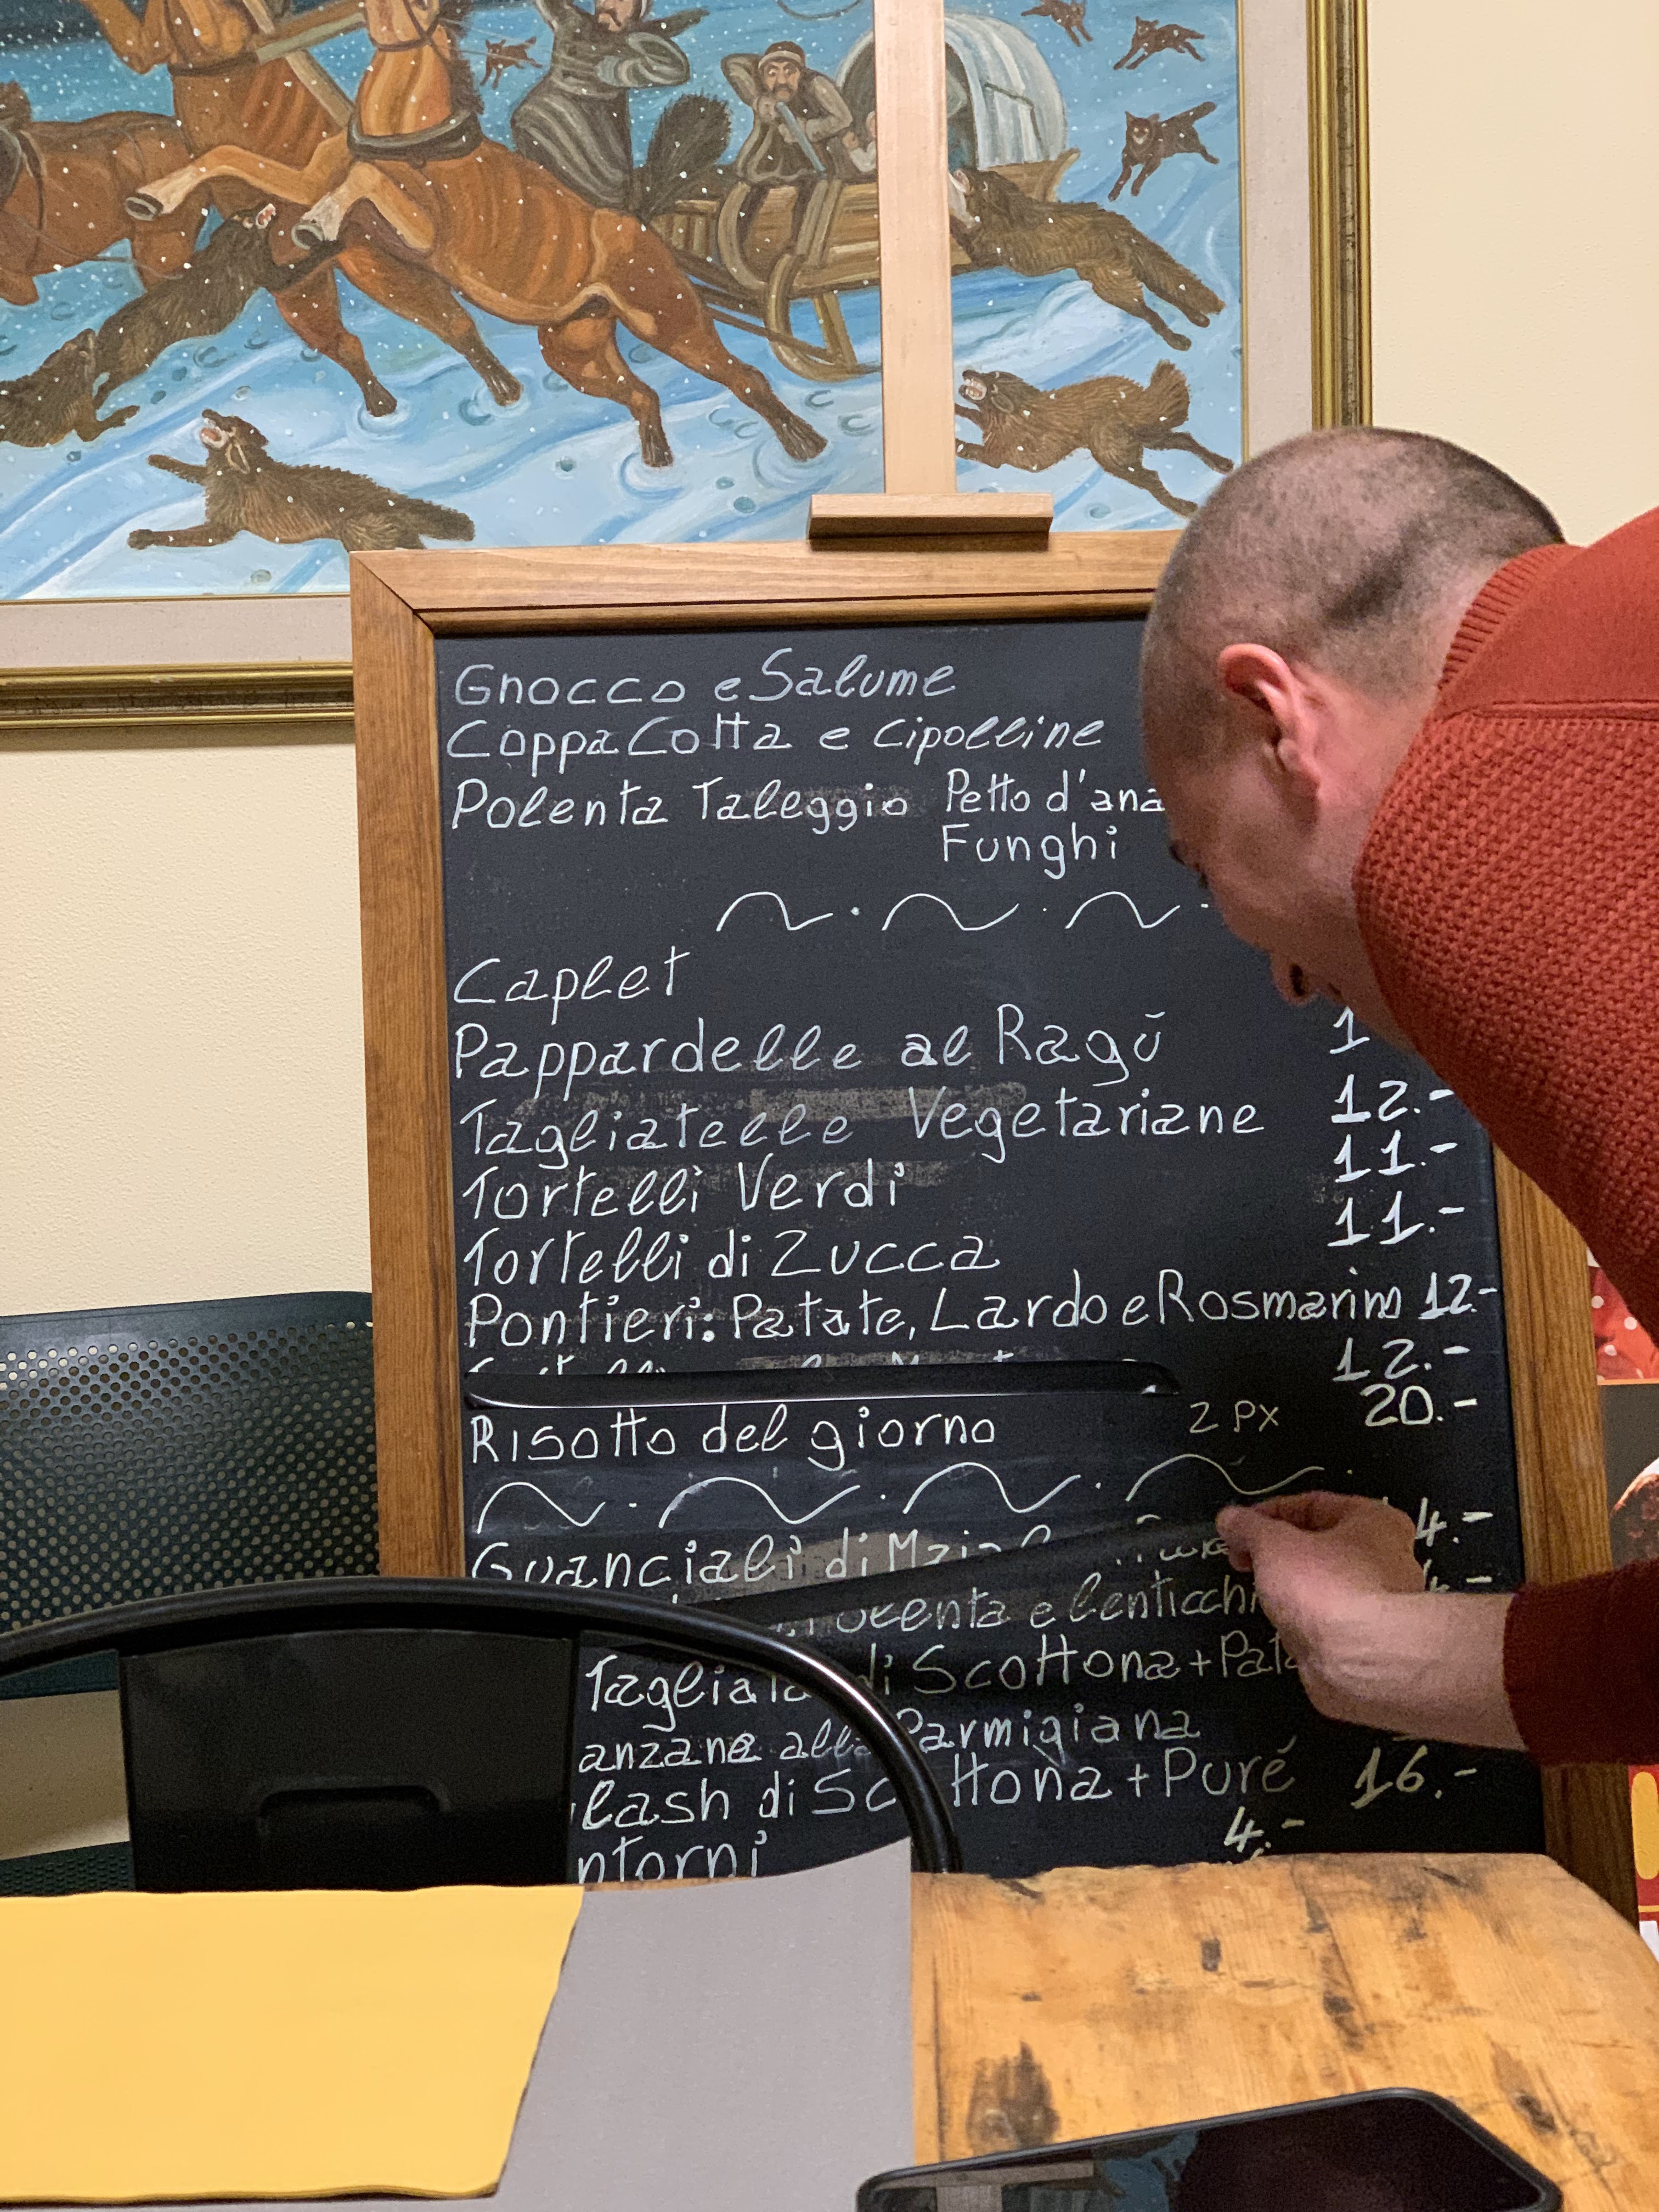 Gnocco e Salume
Coppa Cotta e Cipolline
Polenta Taleggio Petto d'ana
Funghi
Caplet
Pappardelle al Ragù 1
Tagliatelle Vegetariane 12.-
Tortelli Verdi 11.-
Tortelli di Zucca 11.-
Pontieri: Patate, Lardo e Rosmarino 12.-
12.-
Risotto del giorno 2 px 20.-
Guanciali di 4.-
e lenticchi
Tagliata di Scottona + Pata
anzane alla Parmigiana
lash di Scottona + Puré 16.-
ntorni 4.-